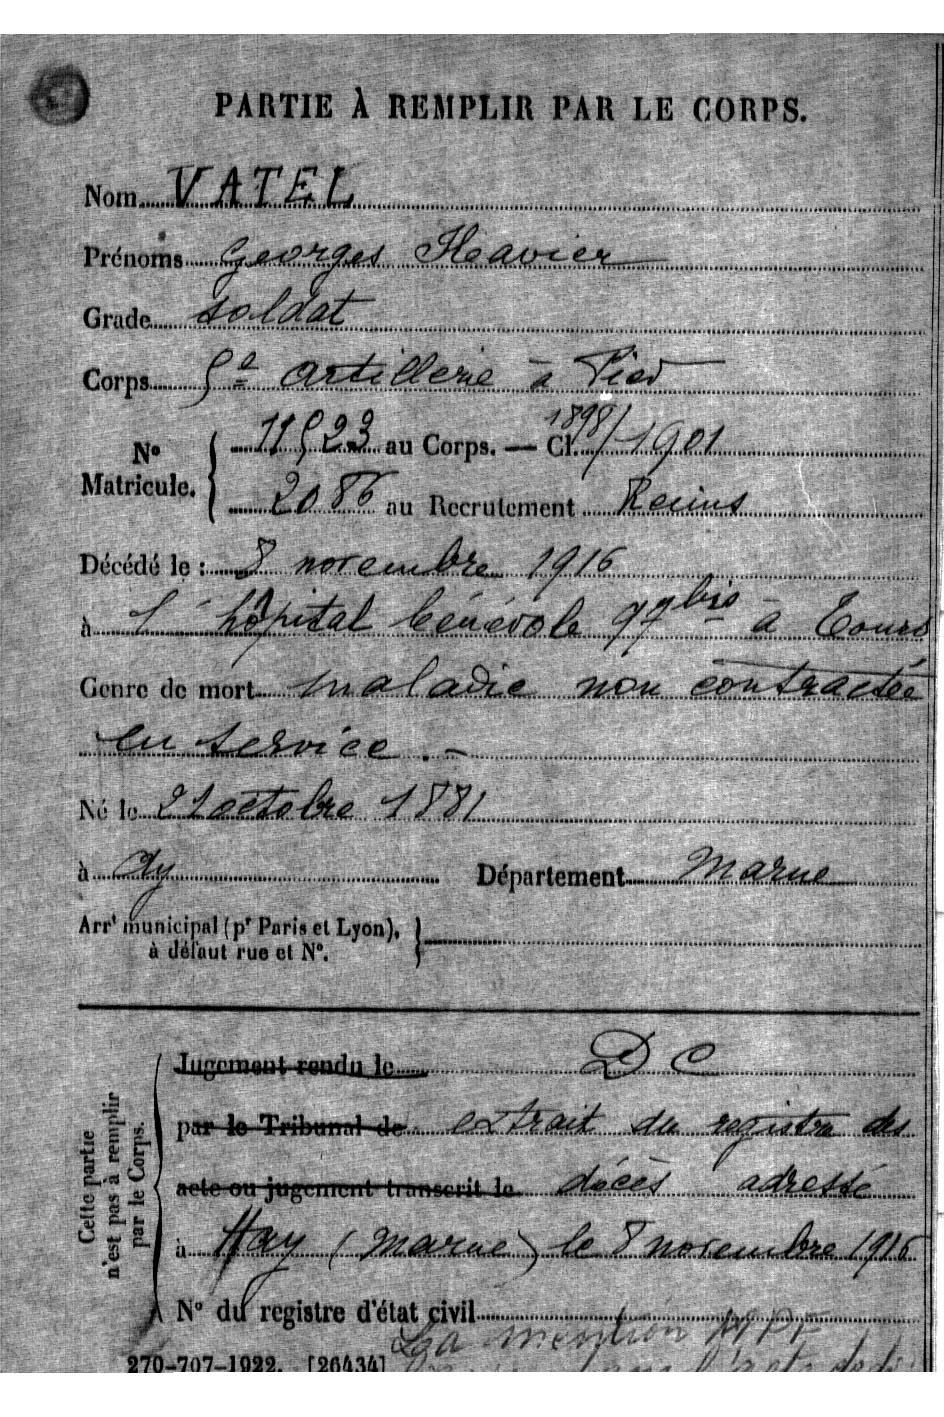 PARTIE À REMPLIR PAR LE CORPS.
Nom VATEL
Prénoms Georges Fleavier
Grade soldat
Corps 5e artillerie à Pied
No Matricule. 11523 au Corps. — Cl. 1898/1901
2086 au Recrutement Reims
Décédé le : 8 novembre 1916
à l'hôpital bénévole 97 bis à Tours
Genre de mort maladie non contractée
en service . –
Né le 21 octobre 1881
à Ay Département Marne
Arrt municipal (pr Paris et Lyon),
à défaut rue et No.
Cette partie
n'est pas à remplir
par le Corps.
Jugement rendu le D C
par le Tribunal de extrait du registre des
acte ou jugement transcrit le décès adressé
à Hay (Marne) le 8 novembre 1916
No du registre d'état civil
La mention MPF
270-707-1922. [26434]